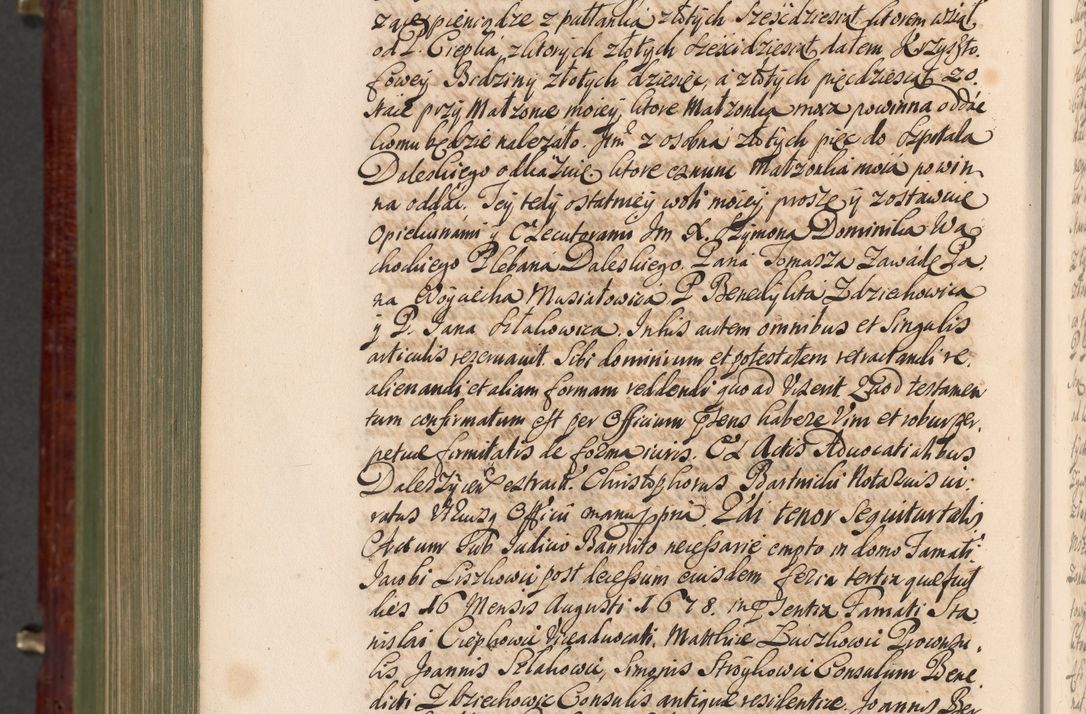 zaię pieniądze z puttanką złotych sześćdziesiąt, ktorem wziął
od P. Ciepka, z ktorych złotych sześcidziesiąt, dałem Krzyszto
fowey Bodziny złotych dziesięc, a złotych pięcdziesiąt zo
staie przy Małżonce moiey, ktore Małżonka moia powinna oddac
komu będzie nalezało. Itm z osobna złotych pięc do szpitala
Daleskiego odkazuię, ktore Małzonka moia powin
na oddac. Tey tedy ostatniey woli moiey proszę y zostawuię
Opiekunami y Executorami Jm X. Szymona Dominika Wą
chockiego Plebana Daleskiego. Pana Tomasza Zawadę Pa
na Woyciecha Musiałowica P. Benedykta Zdziechowica
y P. Jana Szlakowica. In his autem omnibus et singulis
articulis reservavit Sibi dominium et potestatem retractandi re
alienandi et aliam formam reddendi quo ad vixerit. Quod testamen
tum confirmatum est per Officium pñens habere vim et robur per
petuae firmitatis de forma iuris. Ex Actis Advocatialibus
Daleszycen extractt. Christophorus Bartnicki Notarius iu
ratus utriusq Officii manu ppria. 2di tenor sequitur talis
Actum Sub Iudicio Bannito necessarie empto in domo Famati
Jacobi Liszkowic post decessum eiusdem feria tertia quae fuit
dies 16 Mensis Augusti 1678. in pñsentia Famati Sta
nislai Ciepkowic Viceadvocati, Matthiae Luczkowic Proconsu
lis Joannis Szlakowic, Simonis Stroykowic Consulum Bene
dicti Zbziechowic Consulis antiquae residentiae. Joannis Bei